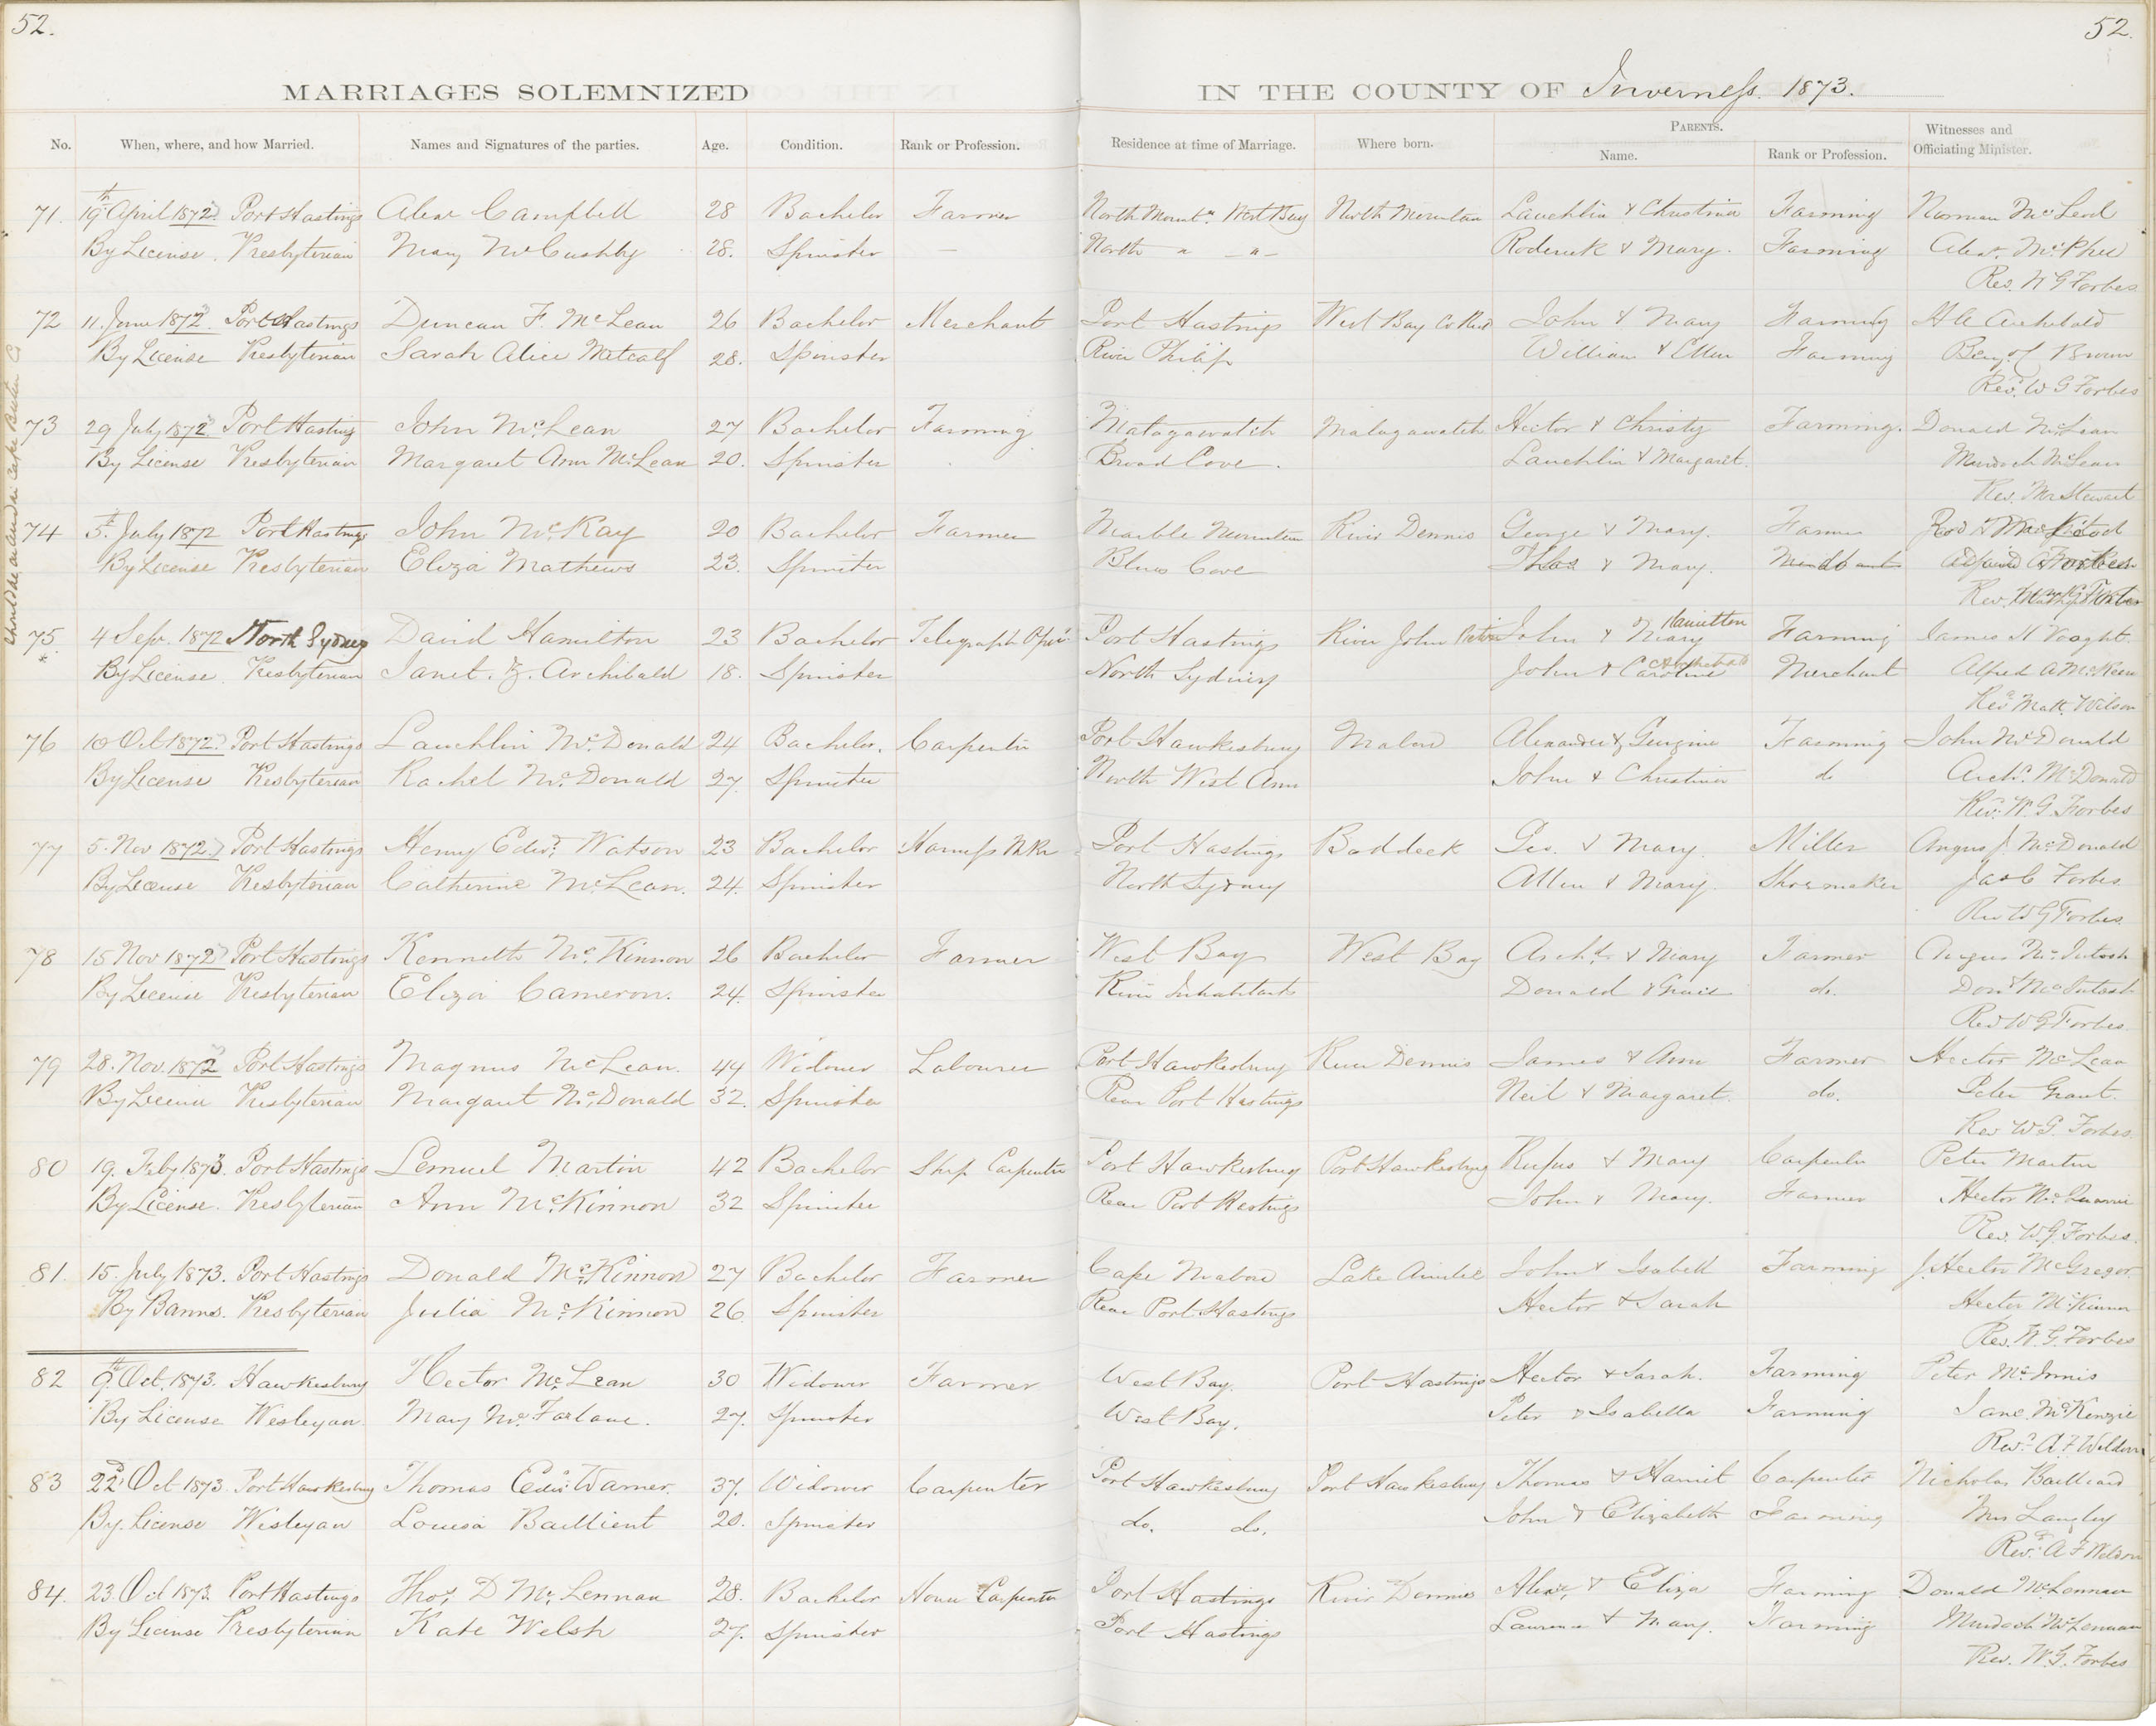 52.
52.
MARRIAGES SOLEMNIZED IN THE COUNTY OF Inverness. 1873.
No. When, where, and how Married. Names and Signatures of the parties. Age. Condition. Rank or Profession. Residence at time of Marriage. Where born. PARENTS. Name. Rank or Profession. Witnesses and Officiating Minister.
should be an and in Cape Breton Co
71. 19th April 1872 Port Hastings Alexr Campbell 28 Bachelor Farmer North Mountn West Bay North Mountain Lauchlin & Christina Farming Norman McLeod
By License. Presbyterian Mary McCushby 28. Spinster — North " -"- Roderick & Mary. Farming Alexr. McPhee
Rev. W G Forbes
72 11. June 1872. Port Hastings Duncan F. McLean 26 Bachelor Merchant Port Hastings West Bay Co Rich John & Mary Farming H A Archibald
By License Presbyterian Sarah Alice Metcalf 28. Spinster River Philip William & Ellen Farming Benj. Brown
Revd. W G Forbes
73 29 July 1872 Port Hastings John McLean 27 Bachelor Farming Malagawatch Malagawatch Hector & Christy Farming. Donald McLean
By License Presbyterian Margaret Ann McLean 20. Spinster Broad Cove. Lauchlin & Margaret. Murdoch McLean
Rev. Mr Stewart
74 5th July 1872 Port Hastings John McKay 20 Bachelor Farmer Marble Mountain River Dennis George & Mary. Farmer
By License Presbyterian Eliza Mathews 23. Spinster Blues Cove Thos & Mary. Forbes
Rev. W G Forbes
75. * 4 Sepr. 1872 North Sydney David Hamilton 23 Bachelor Telegraph Opr Port Hastings River John Pictou John & Mary Hamilton Farming James H Vooght
By License. Presbyterian Janet. Z. Archibald 18. Spinster North Sydney John & Caroline Archibald Merchant Alfred A McKeen
Revd Matt. Wilson
76 10 Oct 1872 Port Hastings Lauchlin McDonald 24 Bachelor. Carpenter Port Hawkesbury Mabou Alexander & Georgina Farming John McDonald
By License Presbyterian Rachel McDonald 27 Spinster North West Arm John & Christina do Archd. McDonald
Rev. W. G. Forbes
77 5. Nov 1872 Port Hastings Henry Edwd. Watson 23 Bachelor Harness Mkr Port Hastings Baddeck Geo. & Mary. Miller Angus J. McDonald
By License Presbyterian Catherine McLean. 24. Spinster North Sydney Allen & Mary. Shoemaker Jas C Forbes.
Rev W G Forbes.
78 15 Nov 1872 Port Hastings Kenneth McKinnon 26 Bachelor Farmer West Bay West Bay Archd. & Mary Farmer Angus McIntosh
By License Presbyterian Eliza Cameron. 24. Spinster River Inhabitants Donald & Grace do. Dond McIntosh
Rev W G Forbes.
79 28. Nov. 1872 Port Hastings Magnus McLean. 44 Widower Labourer Port Hawkesbury River Dennis James & Ann Farmer Hector McLean
By License Presbyterian Margaret McDonald 32. Spinster Rear Port Hastings Neil & Margaret. do. Peter Grant.
Rev W. G. Forbes.
80 19. Feby 1873. Port Hastings Lemuel Martin 42 Bachelor Ship Carpenter Port Hawkesbury Port Hawkesbury Rufus & Mary Carpenter Peter Martin
By License. Presbyterian Ann McKinnon 32 Spinster Rear Port Hastings John & Mary. Farmer Hector McQuarrie
Rev. W G Forbes.
81. 15. July 1873. Port Hastings Donald McKinnon 27 Bachelor Farmer Cape Mabou Lake Ainslie John & Isabell Farming J. Hector McGregor.
By Banns. Presbyterian Julia McKinnon 26 Spinster Rear Port Hastings Hector & Sarah Hector McKinnon
Rev. W. G. Forbes
82 9th Oct. 1873. Hawkesbury Hector McLean 30 Widower Farmer West Bay. Port Hastings Hector & Sarah. Farming Peter McInnis
By License Wesleyan Mary McFarlane. 27. Spinster West Bay. Peter & Isabella Farming Jane. McKenzie
Revd. A F Weldon
83 22d Oct 1873. Port Hawkesbury Thomas Edwd. Warner. 37. Widower Carpenter Port Hawkesbury Port Hawkesbury Thomas & Harriet Carpenter Nicholas Bailleard
By. License Wesleyan Louisa Baillient 20. Spinster do. do. John & Elizabeth Farming Mrs Langley
Revd. A F Weldon
84. 23. Oct 1873. Port Hastings Thos. D McLennan 28. Bachelor House Carpenter Port Hastings River Dennis Alexr. & Eliza Farming Donald McLennan
By License Presbyterian Kate Welsh 27. Spinster Port Hastings Laurence & Mary. Farming Murdoch McLennan
Rev. W. G. Forbes